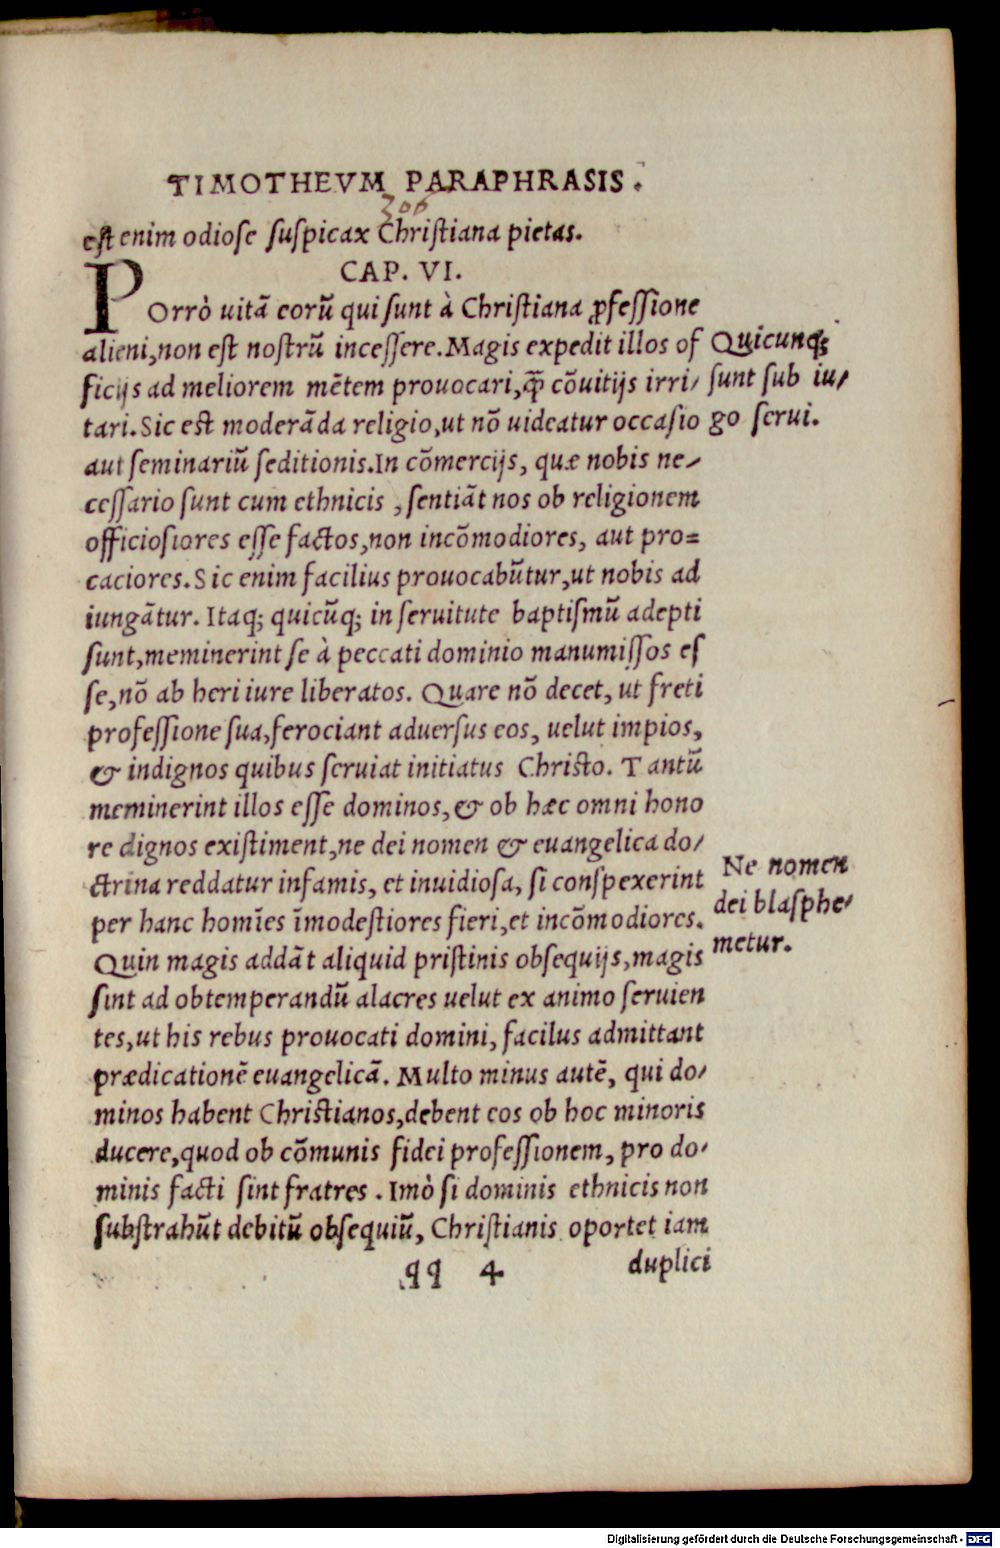 TIMOTHEVM PARAPHRASIS.
306
est enim odiose suspicax Christiana pietas.
CAP. VI.
POrrò uitã eorũ qui sunt à Christiana ꝓfessione
alieni, non est nostrũ incessere. Magis expedit illos of
ficijs ad meliorem mẽtem prouocari, q̃ cõuitijs irri/
tari. Sic est moderãda religio, ut nõ uideatur occasio
aut seminariũ seditionis. In cõmercijs, quæ nobis ne/
cessario sunt cum ethnicis, sentiãt nos ob religionem
officiosiores esse factos, non incõmodiores, aut pro=
caciores. Sic enim facilius prouocabũtur, ut nobis ad
iungãtur. Itaq; quicũq; in seruitute baptismũ adepti
sunt, meminerint se à peccati dominio manumissos es
se, nõ ab heri iure liberatos. Quare nõ decet, ut freti
professione sua, ferociant aduersus eos, uelut impios,
& indignos quibus seruiat initiatus Christo. Tantũ
meminerint illos esse dominos, & ob hæc omni hono
re dignos existiment, ne dei nomen & euangelica do/
ctrina reddatur infamis, et inuidiosa, si conspexerint
per hanc homĩes ĩmodestiores fieri, et incõmodiores.
Quin magis addãt aliquid pristinis obsequijs, magis
sint ad obtemperandũ alacres uelut ex animo seruien
tes, ut his rebus prouocati domini, facilus admittant
prædicationẽ euangelicã. Multo minus autẽ, qui do/
minos habent Christianos, debent eos ob hoc minoris
ducere, quod ob cõmunis fidei professionem, pro do/
minis facti sint fratres. Imò si dominis ethnicis non
substrahũt debitũ obsequiũ, Christianis oportet iam
qq 4
duplici
Quicunq;
sunt sub iu/
go serui.
Ne nomen
dei blasphe/
metur.
Digitalisierung gefördert durch die Deutsche Forschungsgemeinschaft - DFG